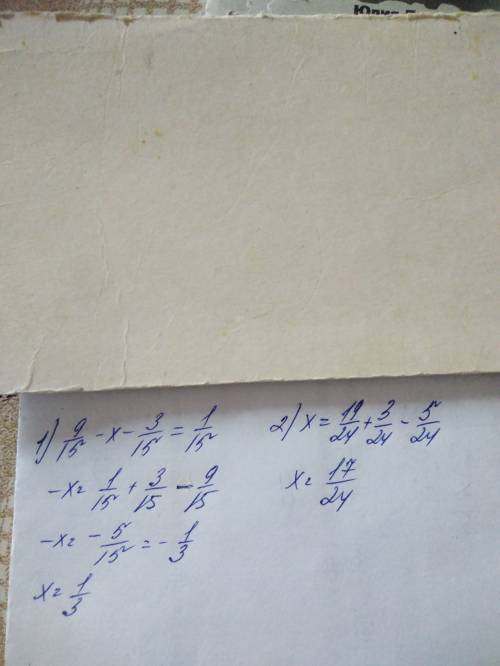 Юлия
1) 9/15 - x - 3/15 = 1/15
-x = 1/15 + 3/15 - 9/15
-x = - 5/15 = - 1/3
x = 1/3
2) x = 19/24 + 3/24 - 5/24
x = 17/24